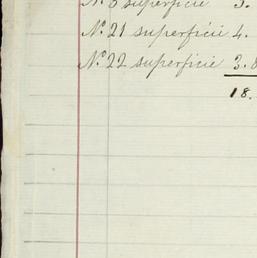 Nº 8 superficie 3.
Nº 21 superficie 4.
Nº 22 superficie 3.8
18.